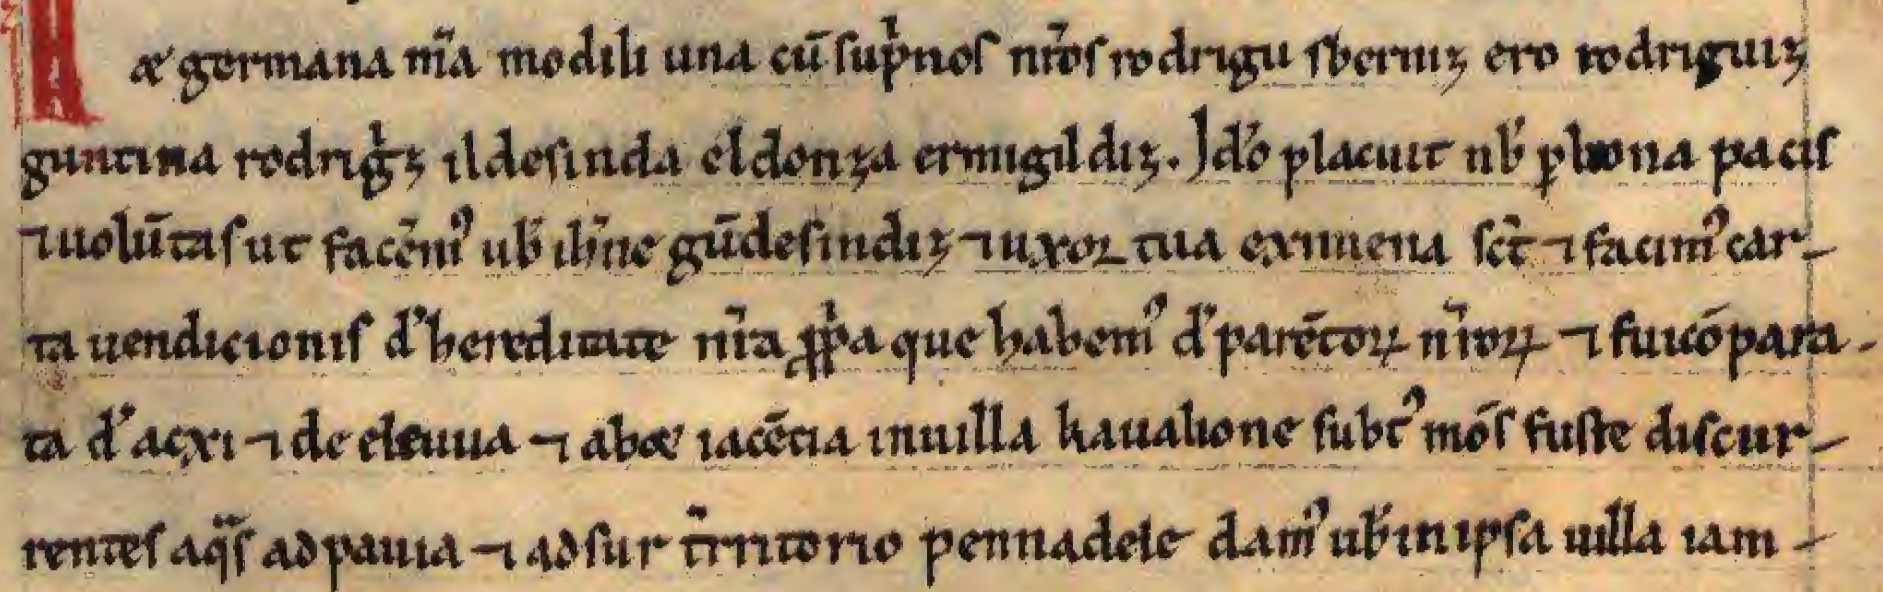 & germana mr̃a modili una cũ sup̃nos nr̃os rodrigu sberniz ero rodriguiz
guntina rodrig̃z ildesinda eldonza ermigildiz. Jd̕o placuit nb̕ ꝑ bona pacis
⁊ uolũtas ut facẽm⁹ ub̕ ib̃ne gũdesindiz ⁊ uxor tua eximena sct̃ ⁊ facim⁹ car-
ta uendicionis d̕ hereditate nr̃a ꝓp̃a que habem⁹ d̕ parẽtoꝝ nr̃oꝝ ⁊ fuit cõpara-
ta d̕ acxi ⁊ de eleuua ⁊ ab& iacẽtia in uilla kaualione subt⁹ mõs fuste discur-
rentes aq̃s ad pauia ⁊ ad sur tr̃ritorio pennadele dam⁹ ub̕ in ipsa uilla iam-